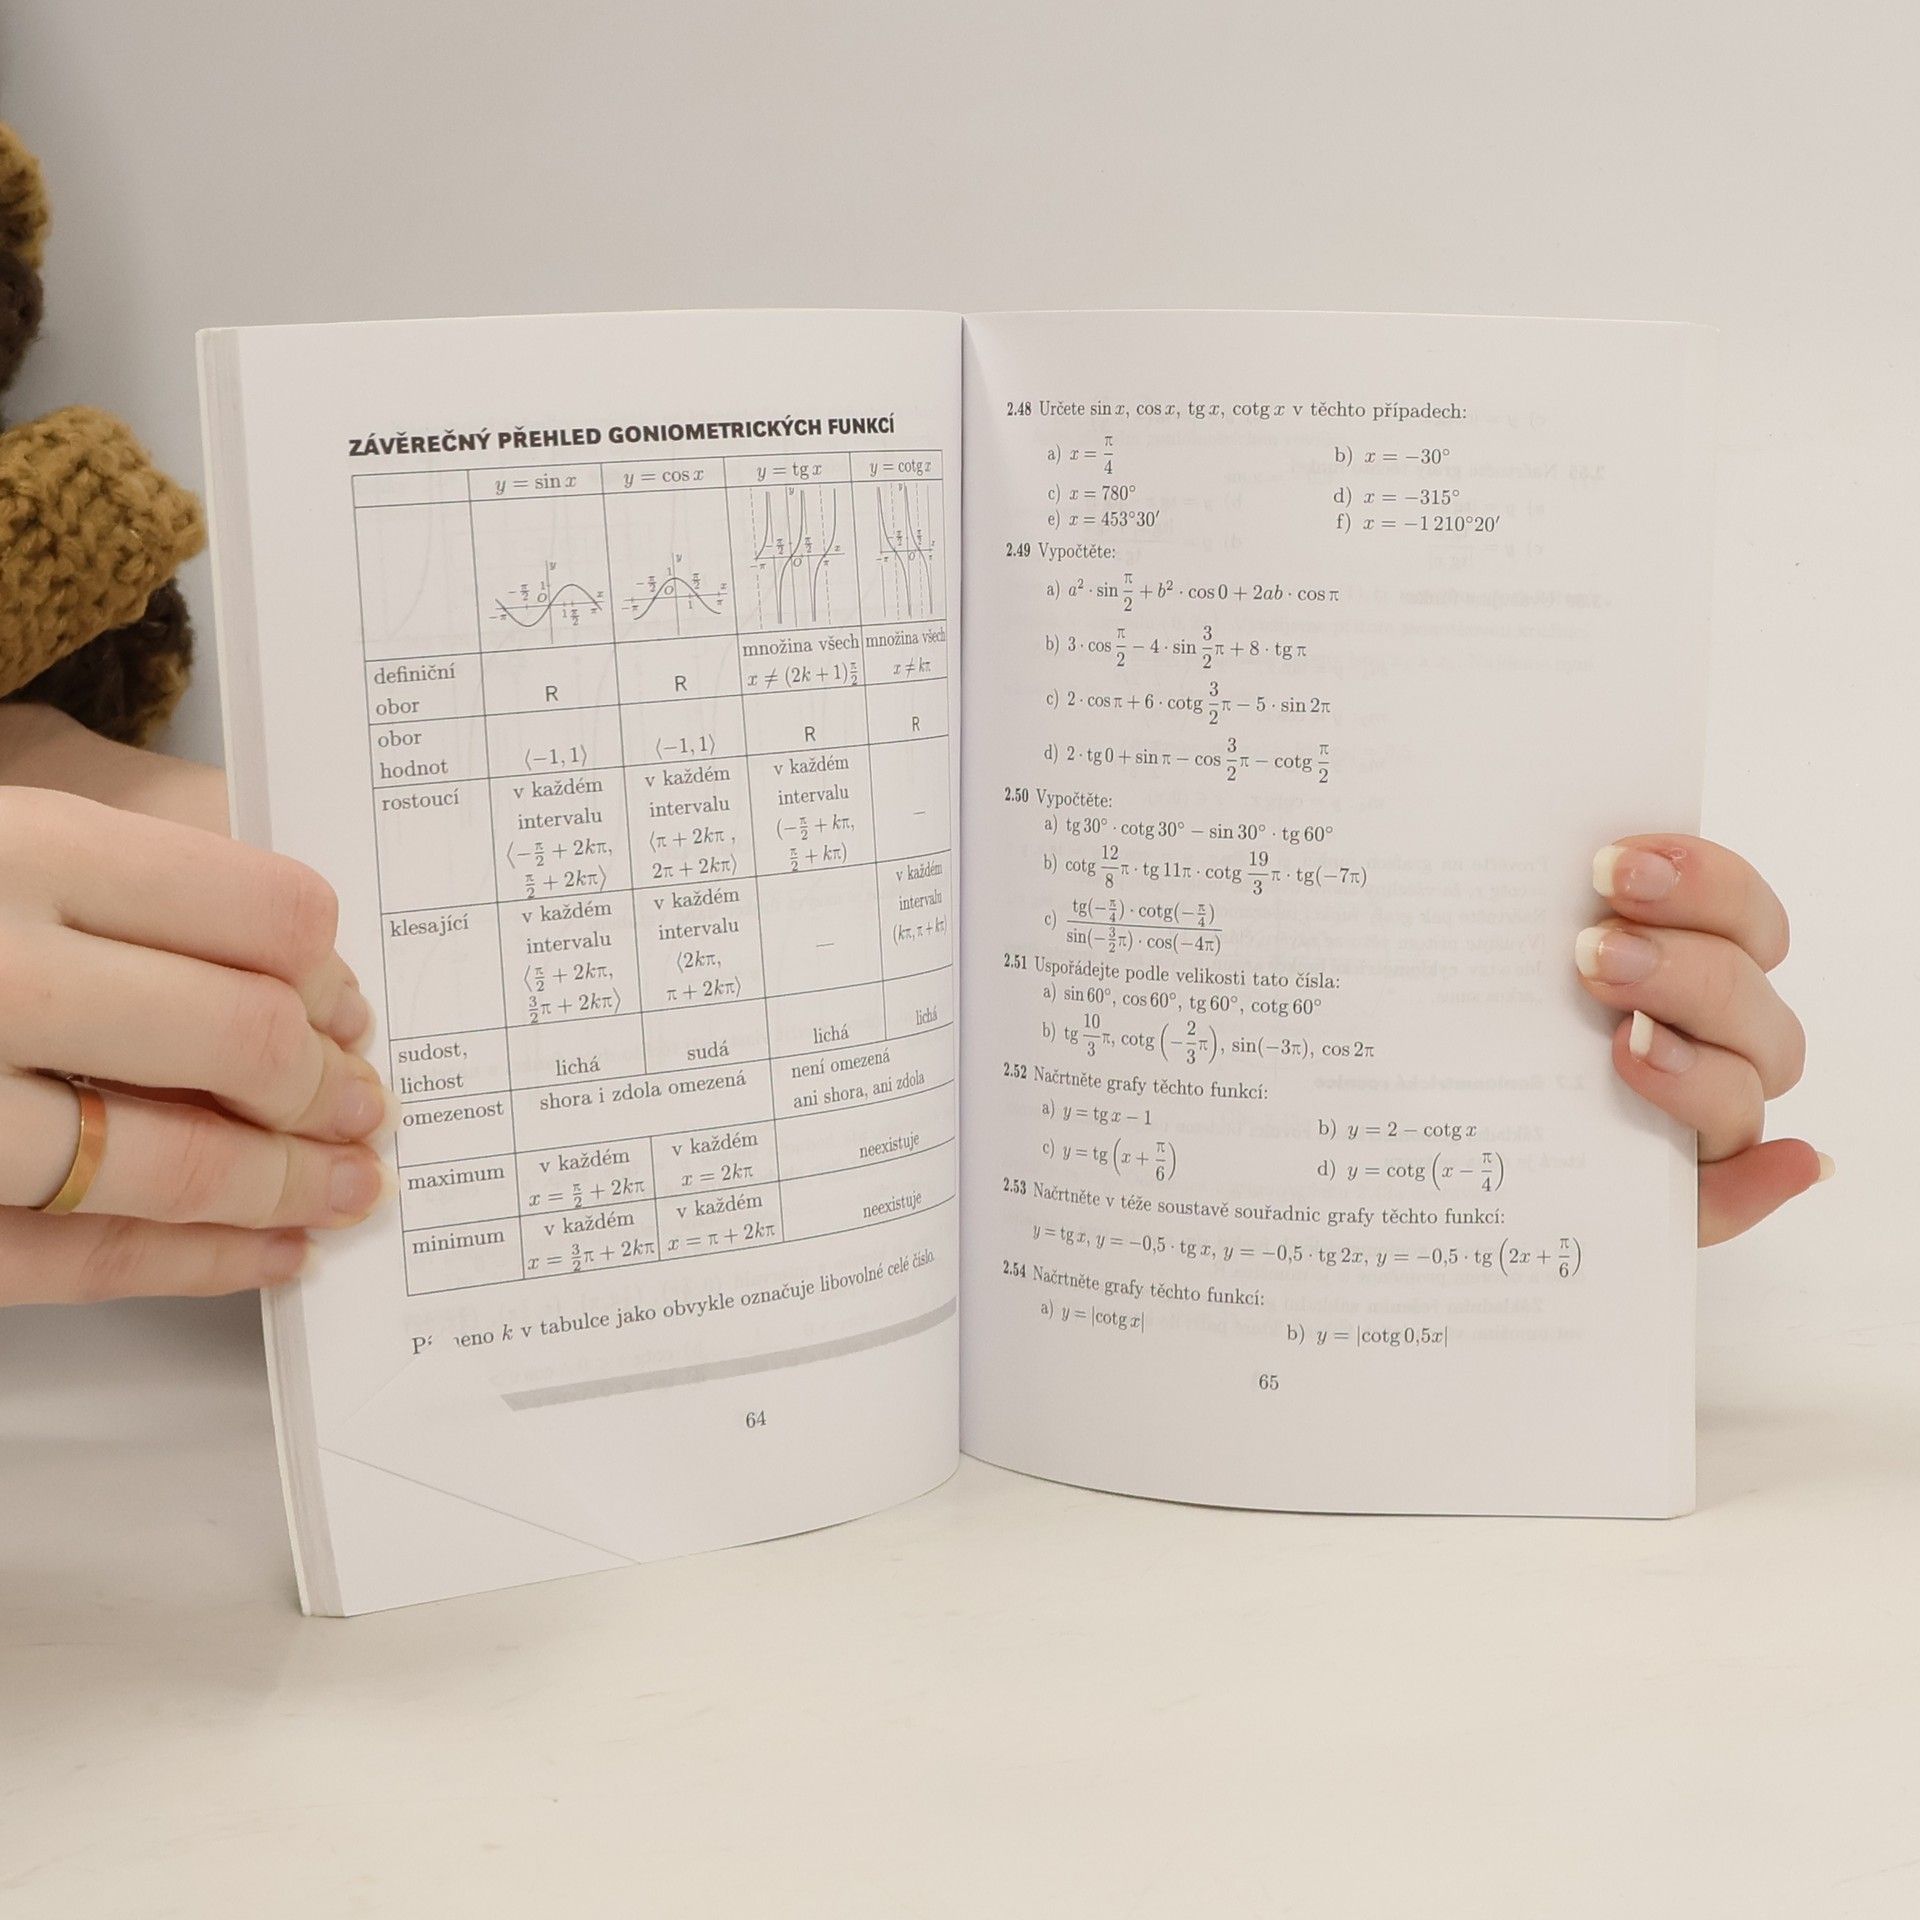 ZÁVĚREČNÝ PŘEHLED GONIOMETRICKÝCH FUNKCÍ
y = sin x y = cos x y = tg x y = cotg x
definiční obor R R množina všech x ≠ (2k + 1)π/2 množina všech x ≠ kπ
obor hodnot ⟨−1, 1⟩ ⟨−1, 1⟩ R R
rostoucí v každém intervalu ⟨−π/2 + 2kπ, π/2 + 2kπ⟩ v každém intervalu ⟨π + 2kπ, 2π + 2kπ⟩ v každém intervalu (−π/2 + kπ, π/2 + kπ) —
klesající v každém intervalu ⟨π/2 + 2kπ, 3/2π + 2kπ⟩ v každém intervalu ⟨2kπ, π + 2kπ⟩ — v každém intervalu (kπ, π + kπ)
sudost, lichost lichá sudá lichá lichá
omezenost shora i zdola omezená není omezená ani shora, ani zdola
maximum v každém x = π/2 + 2kπ v každém x = 2kπ neexistuje
minimum v každém x = 3/2π + 2kπ v každém x = π + 2kπ neexistuje
k v tabulce jako obvykle označuje libovolné celé číslo.
64
2.48 Určete sin x, cos x, tg x, cotg x v těchto případech:
a) x = π/4 b) x = −30°
c) x = 780° d) x = −315°
e) x = 453°30′ f) x = −1 210°20′
2.49 Vypočtěte:
a) a² · sin π/2 + b² · cos 0 + 2ab · cos π
b) 3 · cos π/2 − 4 · sin 3/2π + 8 · tg π
c) 2 · cos π + 6 · cotg 3/2π − 5 · sin 2π
d) 2 · tg 0 + sin π − cos 3/2π − cotg π/2
2.50 Vypočtěte:
a) tg 30° · cotg 30° − sin 30° · tg 60°
b) cotg 12/8π · tg 11π · cotg 19/3π · tg(−7π)
c) tg(−π/4) · cotg(−π/4) / sin(−3/2π) · cos(−4π)
2.51 Uspořádejte podle velikosti tato čísla:
a) sin 60°, cos 60°, tg 60°, cotg 60°
b) tg 10/3π, cotg (−2/3π), sin(−3π), cos 2π
2.52 Načrtněte grafy těchto funkcí:
a) y = tg x − 1 b) y = 2 − cotg x
c) y = tg (x + π/6) d) y = cotg (x − π/4)
2.53 Načrtněte v téže soustavě souřadnic grafy těchto funkcí:
y = tg x, y = −0,5 · tg x, y = −0,5 · tg 2x, y = −0,5 · tg (2x + π/6)
2.54 Načrtněte grafy těchto funkcí:
a) y = |cotg x| b) y = |cotg 0,5x|
65